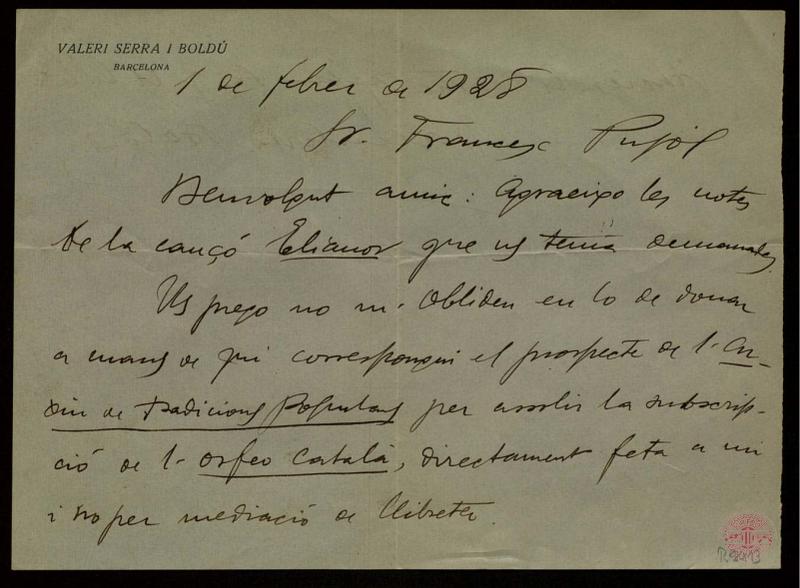 VALERI SERRA I BOLDÚ
BARCELONA
1 de febrer de 1928
Sr. Francesc Pujol
Benvolgut amic: Agraeixo les notes
de la cançó Elianor que us tenia demanades.
Us prego no m'obliden en lo de donar
a mans de qui correspongui el prospecte de l'Ar-
xiu de Tradicions Populars per assolir la subscrip-
ció de l'Orfeó Català, directament feta a mi
i no per mediació de llibreter.